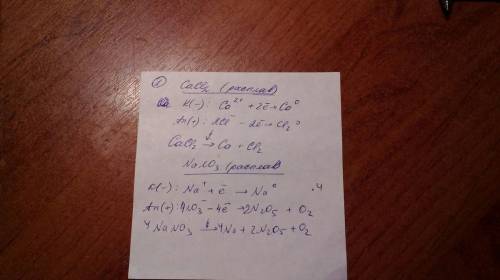 ① CaCl₂ (расплав)
K(-): Ca²⁺ + 2ē → Ca⁰
An(+): 2Cl⁻ - 2ē → Cl₂⁰
CaCl₂ → Ca + Cl₂
NaNO₃ (расплав)
K(-): Na⁺ + ē → Na⁰ ·4
An(+): 4NO₃⁻ - 4ē → 2N₂O₅ + O₂
4NaNO₃ → 4Na + 2N₂O₅ + O₂